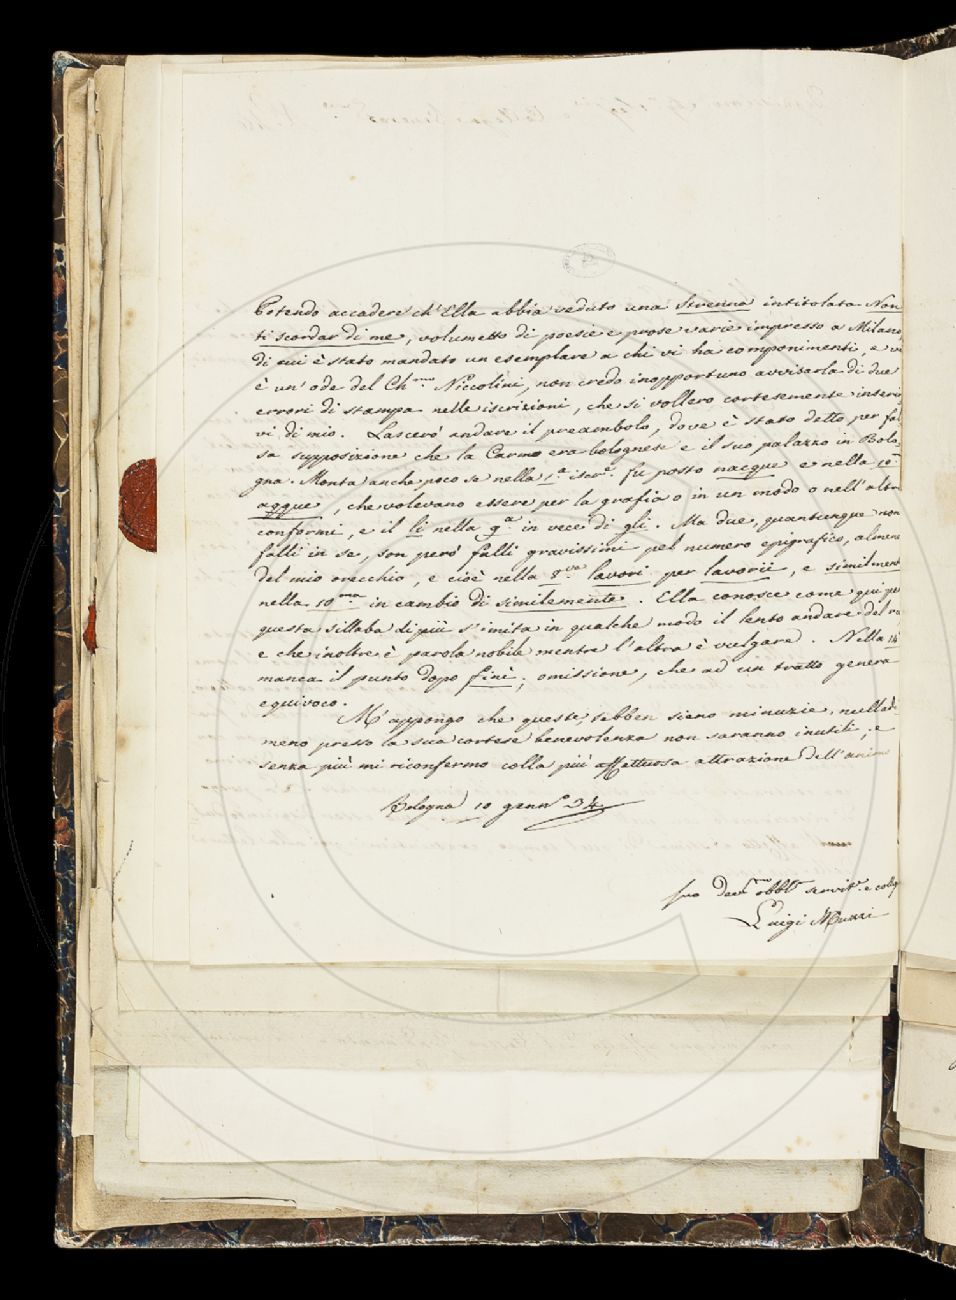 Potendo accadere ch'Ella abbia veduto una Strenna intitolata Non
ti scordar di me, volumetto di poesie e prose varie impresso a Milano,
di cui è stato mandato un esemplare a chi vi ha componimenti, e vi
è un' ode del Ch.mo Niccolini, non credo inopportuno avvisarla di due
errori di stampa nelle iscrizioni, che si vollero cortesemente inserir
vi di mio. Lascerò andare il preambolo, dove è stato detto per fal
sa supposizione che la Carmo era bolognese e il suo palazzo in Bolo
gna. Monta anche poco se nella 1.a iscr.e fu posto nacque e nella 10
acque, che volevano essere per la grafia o in un modo o nell'altr
conformi, e il li nella 9.a in vece di gli. Ma due, quantunque non
falli in se, son però falli gravissimi pel numero epigrafico, almeno
del mio orecchio, e cioè nella 8.va lavori per lavorii, e similment
nella 10.ma in cambio di similemente. Ella conosce come qui per
questa sillaba di più s'imita in qualche modo il lento andare del
e che inoltre è parola nobile mentre l'altra è vulgare. Nella 14
manca il punto dopo finì; omissione, che ad un tratto genera
equivoco.
M'appongo che queste, sebben sieno minuzie, nulladi
meno presso la sua cortese benevolenza non saranno inutili; e
senza più mi riconfermo colla più affettuosa attrazione dell'animo
Bologna 10 genn.o 34.
suo dev.mo obbl.mo servit.e e colleg
Luigi Muzzi